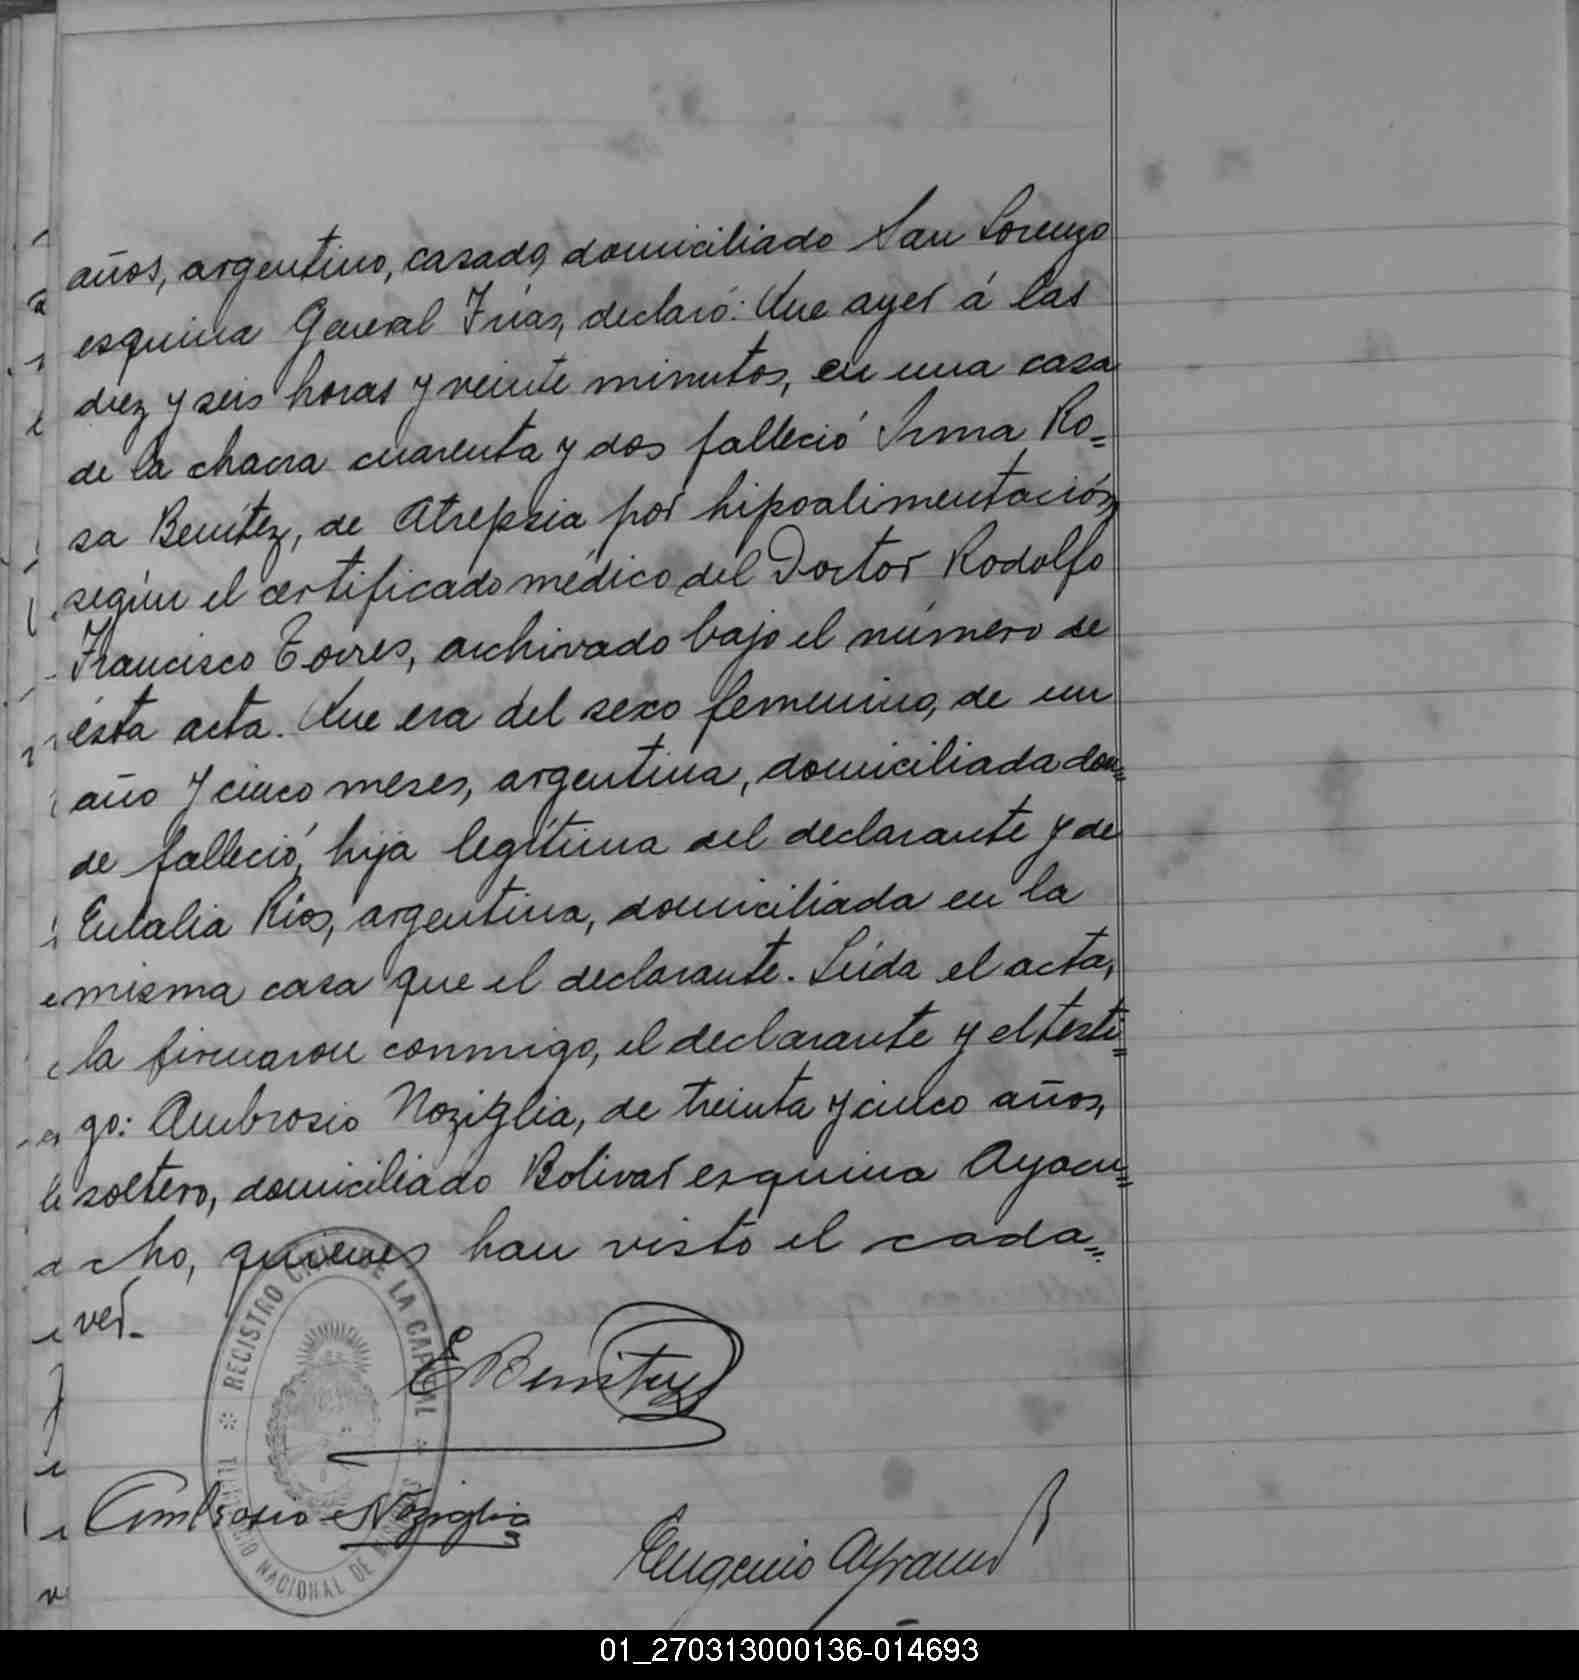 años, argentino, casado, domiciliado San Lorenzo
esquina General Frías, declaró: Que ayer á las
diez y seis horas y veinte minutos, en una casa
de la chacra cuarenta y dos falleció Irma Ro=
sa Benítez, de Atrepsia por hipoalimentación,
según el certificado médico del Doctor Rodolfo
Francisco Torres, archivado bajo el número de
ésta acta. Que era del sexo femenino, de un
año y cinco meses, argentina, domiciliada don=
de falleció, hija legítima del declarante y de
Eulalia Ríos, argentina, domiciliada en la
misma casa que el declarante. Leída el acta,
la firmaron conmigo, el declarante y el testi=
go: Ambrosio Noziglia, de treinta y cinco años,
soltero, domiciliado Bolivar esquina Ayacu=
cho, quienes han visto el cadá=
ver.
REGISTRO CIVIL DE LA CAPITAL
TERRITORIO NACIONAL DE MISIONES
E Benitez
Ambrosio Noziglia
Eugenio
01_270313000136-014693